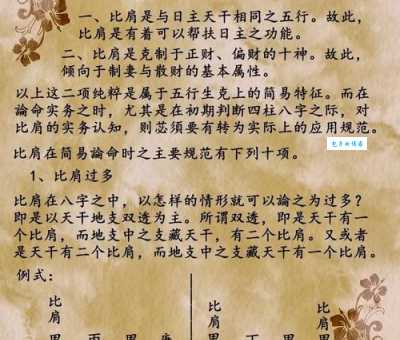 一、比肩是与日主天干相同之五行。故此，
比肩是有着可以帮扶日主之功能。
二、比肩是克制于正财、偏财的十神。故此，
倾向于制妻与散财的基本属性。
以上这二项纯粹是属于五行生克上的简易特征。而在
論命实务之时，尤其是在初期判断四柱八字之际，对
比肩的实务认知，则苾须要有转为实际上的应用规范。
比肩在简易論命时之主要规范有下列十项。
1、比肩过多
比肩在八字之中，以怎样的情形就可以論之为过多？
即是以天干地支双透为主。所谓双透，即是天干有一
个比肩，而地支中之支藏天干，有二个比肩。又或者
是天干有二个比肩，而地支中之支藏天干有一个比肩。
例式：
比肩
比肩
比肩